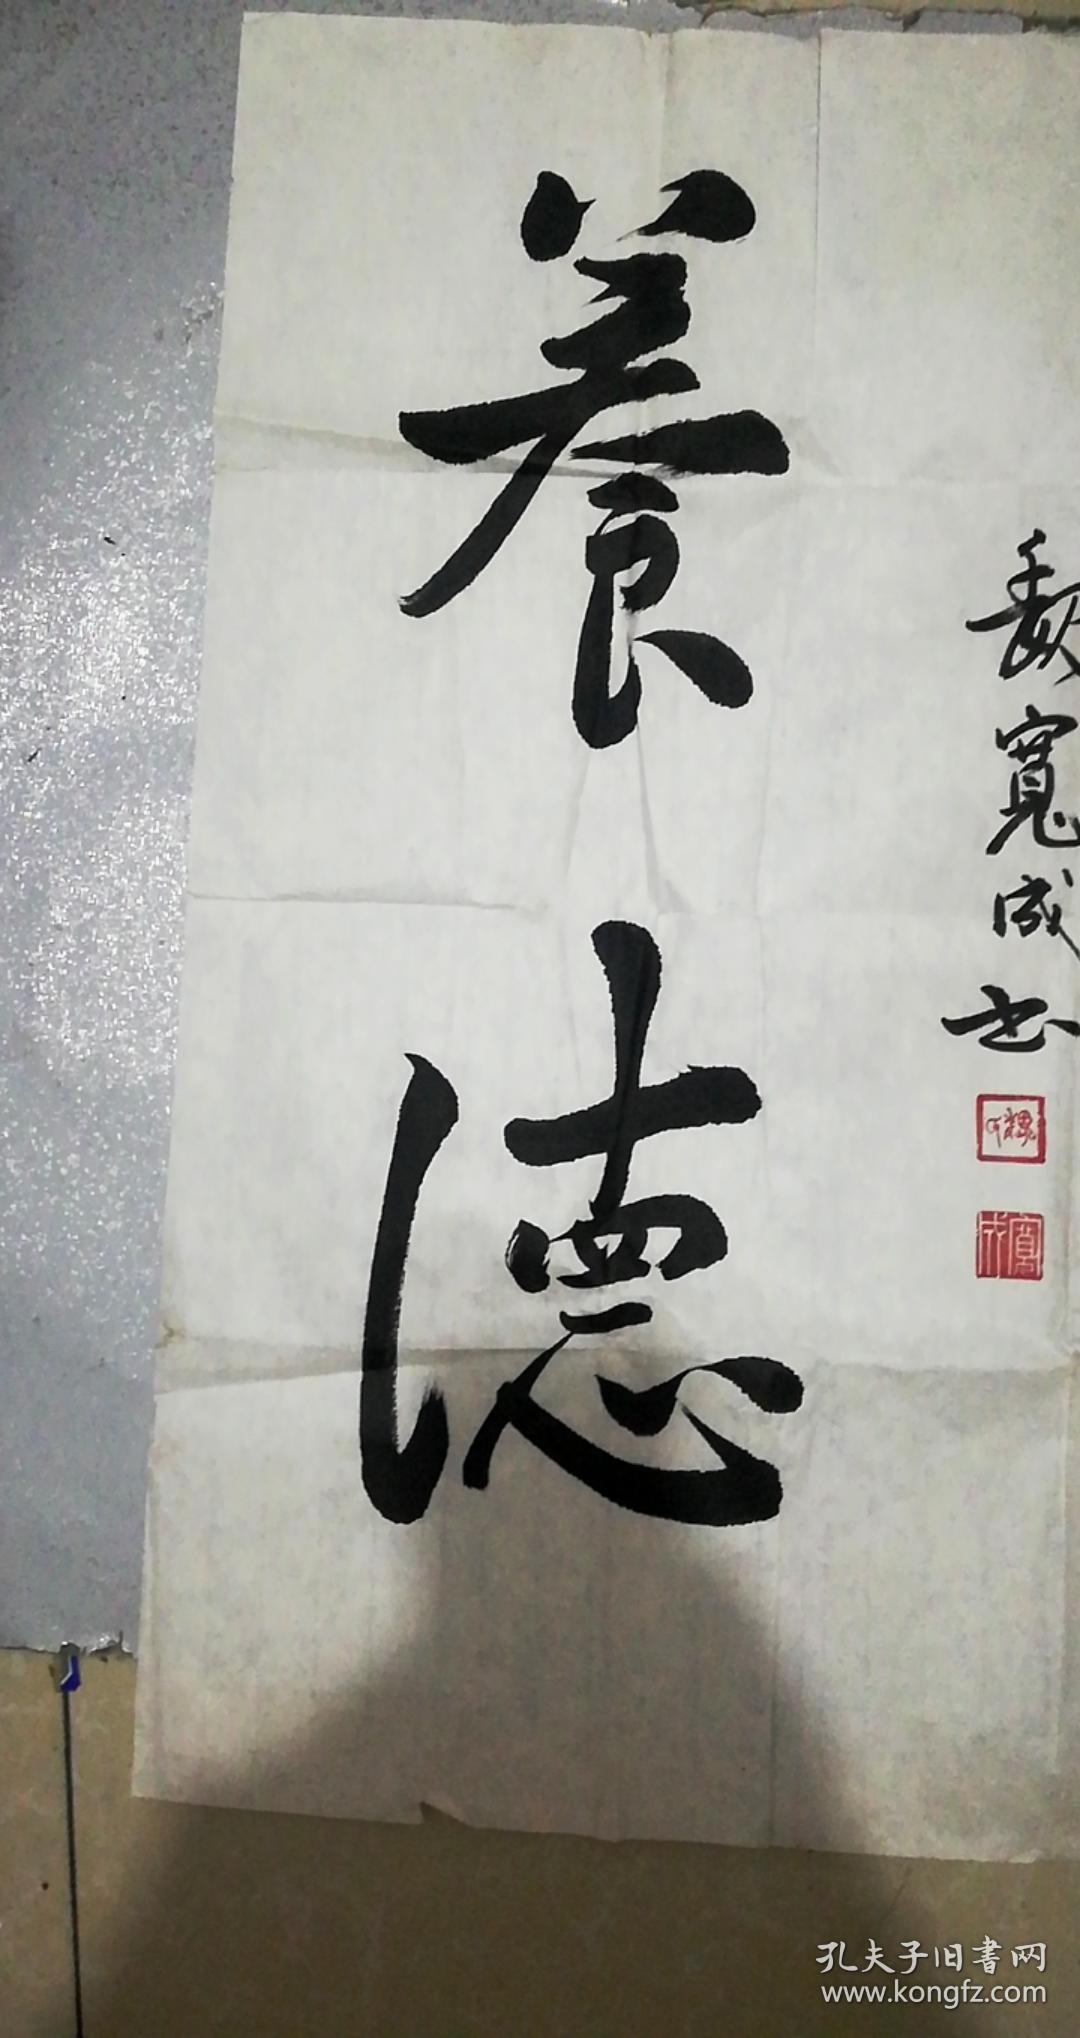 養
德
魏寬成书
寬成
孔夫子旧書网
www.kongfz.com